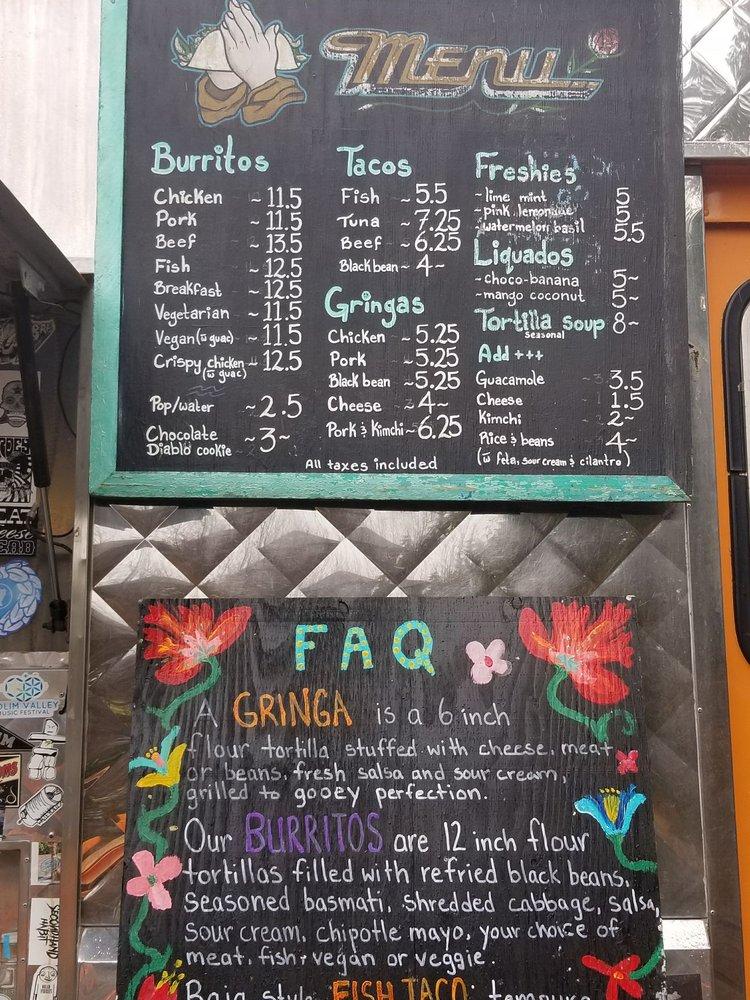 Menu
Burritos
Chicken ~ 11.5
Pork ~ 11.5
Beef ~ 13.5
Fish ~ 12.5
Breakfast ~ 12.5
Vegetarian ~ 11.5
Vegan (w̄ guac) ~ 11.5
Crispy chicken ~ 12.5
(w̄ guac)
Pop/water ~ 2.5
Chocolate ~ 3~
Diablo cookie
Tacos
Fish ~ 5.5
Tuna ~ 7.25
Beef ~ 6.25
Black bean ~ 4~
Gringas
Chicken ~ 5.25
Pork ~ 5.25
Black bean ~ 5.25
Cheese ~ 4~
Pork & Kimchi ~ 6.25
Freshies
~ lime mint 5
~ pink lemonade 5
~ watermelon basil 5.5
Liquados
~ choco-banana 5~
~ mango coconut 5~
Tortilla soup 8~
seasonal
Add +++
Guacamole 3.5
Cheese 1.5
Kimchi 2~
Rice & beans 4~
(w̄ feta, sour cream & cilantro)
All taxes included
FAQ
A GRINGA is a 6 inch
flour tortilla stuffed with cheese, meat
or beans, fresh salsa and sour cream,
grilled to gooey perfection.
Our BURRITOS are 12 inch flour
tortillas filled with refried black beans,
seasoned basmati, shredded cabbage, salsa,
sour cream, chipotle mayo, your choice of
meat, fish, vegan or veggie.
Baja style FISH TACO: tempura
VALLEY
MUSIC FESTIVAL